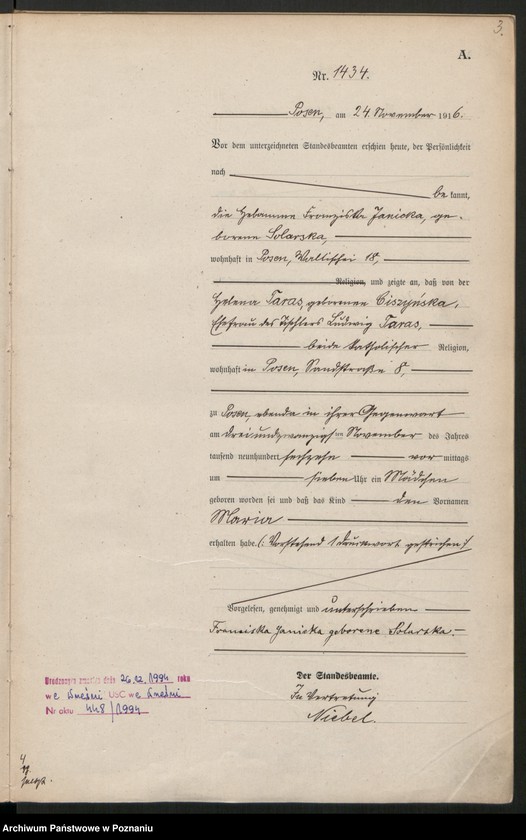 3.
A.
Nr. 1434.
Posen, am 24. November 1916.
Vor dem unterzeichneten Standesbeamten erschien heute, der Persönlichkeit
nach
bekannt,
die Hebamme Franziska Janicka, ge-
borene Solarska,
wohnhaft in Posen, Wallischei 18,
Religion, und zeigte an, daß von der
Helena Taras, geborenen Ciszyńska,
Ehefrau des Tischlers Ludwig Taras,
beide katholischer Religion,
wohnhaft in Posen, Sandstraße 8,
zu Posen, ebenda in ihrer Gegenwart
am dreiundzwanzigsten November des Jahres
tausend neunhundert sechzehn vormittags
um sieben Uhr ein Mädchen
geboren worden sei und daß das Kind den Vornamen
Maria
erhalten habe. (: Vorstehend 1 Druckwort gestrichen :)
Vorgelesen, genehmigt und unterschrieben
Franciska Janicka geborene Solarska.
Der Standesbeamte.
In Vertretung
Niebel.
dnia 26.12.1994 roku
we Wrześni USC we Wrześni
Nr aktu 448/1994
4
Archiwum Państwowe w Poznaniu